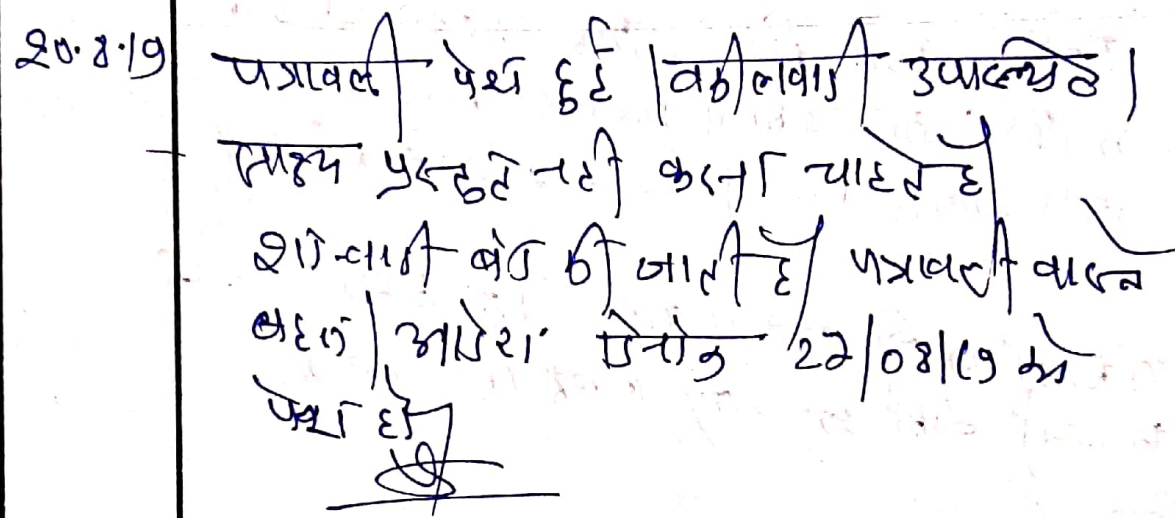 20.8.19 पत्रावली पेश हुई । वकीलवादी उपस्थित ।
साक्ष्य प्रस्तुत नही करना चाहते है
की जाती है पत्रावली वास्ते
बहस / आदेश दिनांक 22/08/19 को
पेश हो